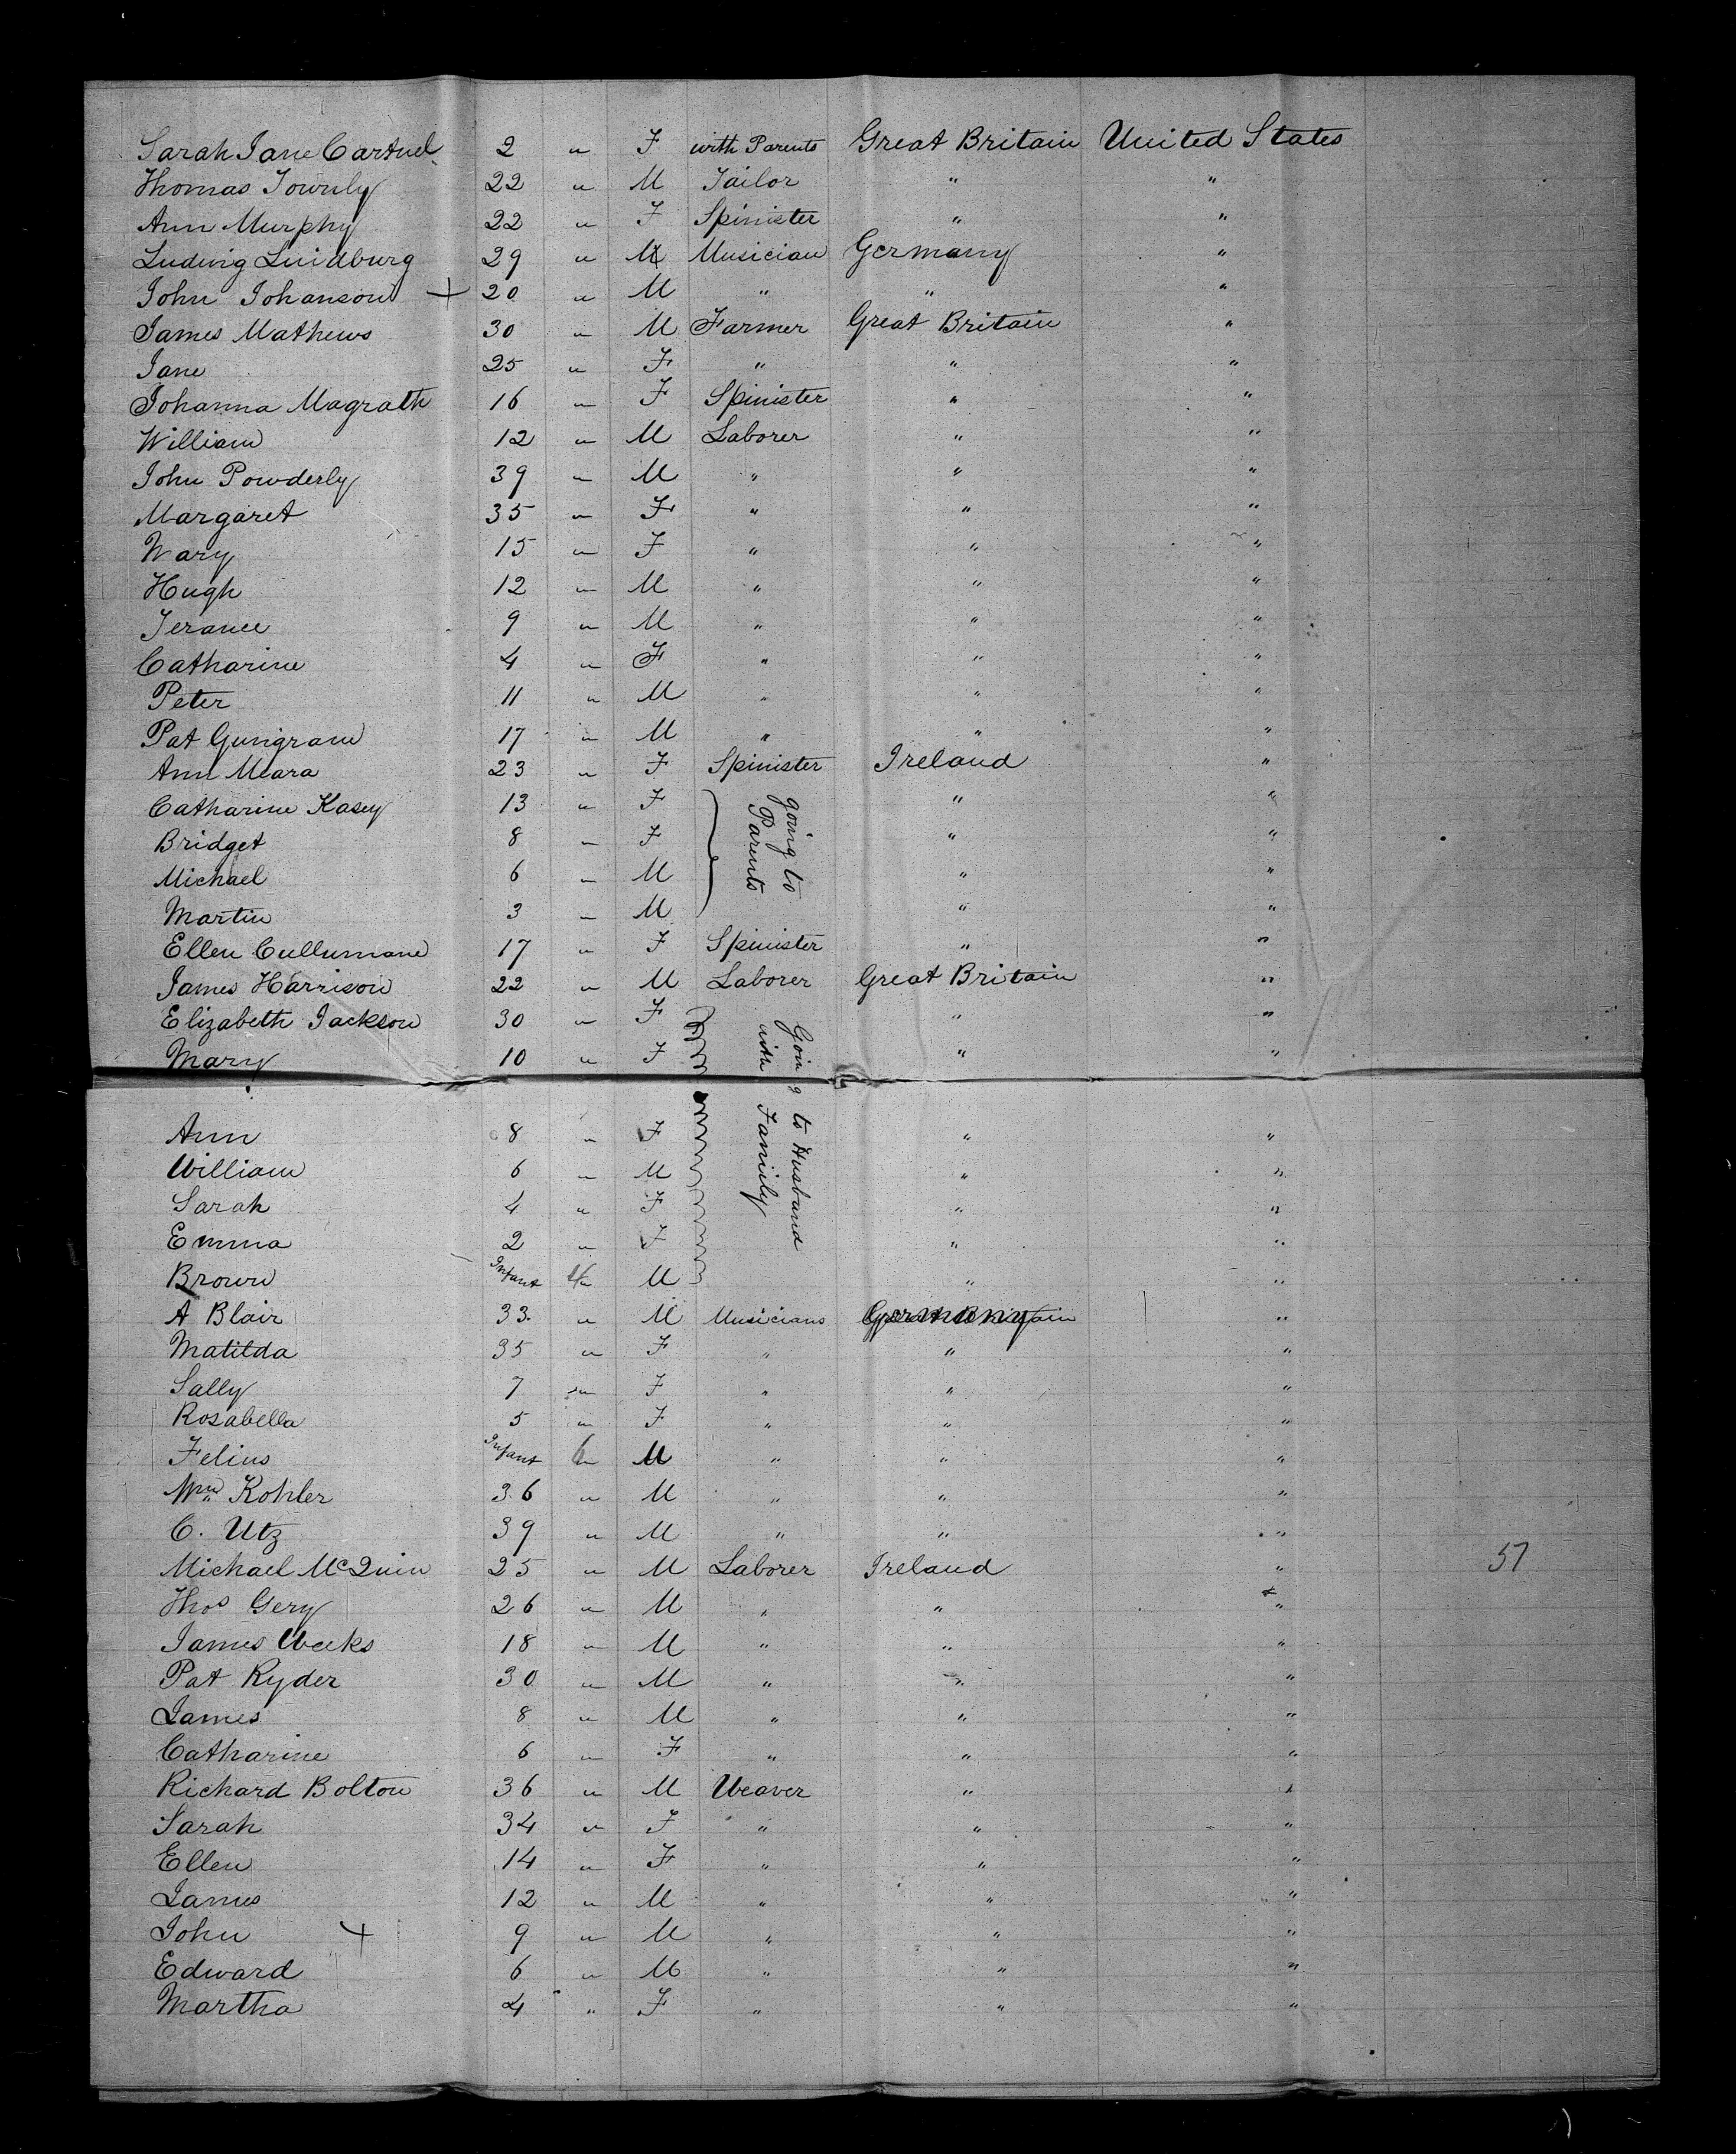 Sarah Jane Cartnel 2 " F with Parents Great Britain United States
Thomas Townly 22 " M Tailor " "
Ann Murphy 22 " F Spinister " "
Ludwig Luidburg 29 " M Musician Germany "
John Johanson + 20 " M " " "
James Mathews 30 " M Farmer Great Britain "
Jane 25 " F " " "
Johanna Magrath 16 " F Spinister " "
William 12 " M Laborer " "
John Powderly 39 " M " " "
Margaret 35 " F " " "
Mary 15 " F " " "
Hugh 12 " M " " "
Terance 9 " M " " "
Catharine 4 " F " " "
Peter 11 " M " " "
Pat Gungran 17 " M " " "
Ann Meara 23 " F Spinister Ireland "
Catharine Kasey 13 " F going to Parents " "
Bridget 8 " F " "
Michael 6 " M " "
Martin 3 " M " "
Ellen Cullumane 17 " F Spinister " "
James Harrison 22 " M Laborer Great Britain "
Elizabeth Jackson 30 " F Going to Husband with Family " "
Mary 10 " F " "
Ann 8 " F " "
William 6 " M " "
Sarah 4 " F " "
Emma 2 " F " "
Brown Infant 4 " M " "
A Blair 33 " M Musicians Germany "
Matilda 35 " F " " "
Sally 7 " F " " "
Rosabella 5 " F " " "
Felius Infant 6 " M " " "
Wm Kohler 36 " M " " "
C. Utz 39 " M " " "
Michael McQuin 25 " M Laborer Ireland " 57
Thos Gery 26 " M " " "
James Weeks 18 " M " " "
Pat Ryder 30 " M " " "
James 8 " M " " "
Catharine 6 " F " " "
Richard Bolton 36 " M Weaver " "
Sarah 34 " F " " "
Ellen 14 " F " " "
James 12 " M " " "
John + 9 " M " " "
Edward 6 " M " " "
Martha 4 " F " " "